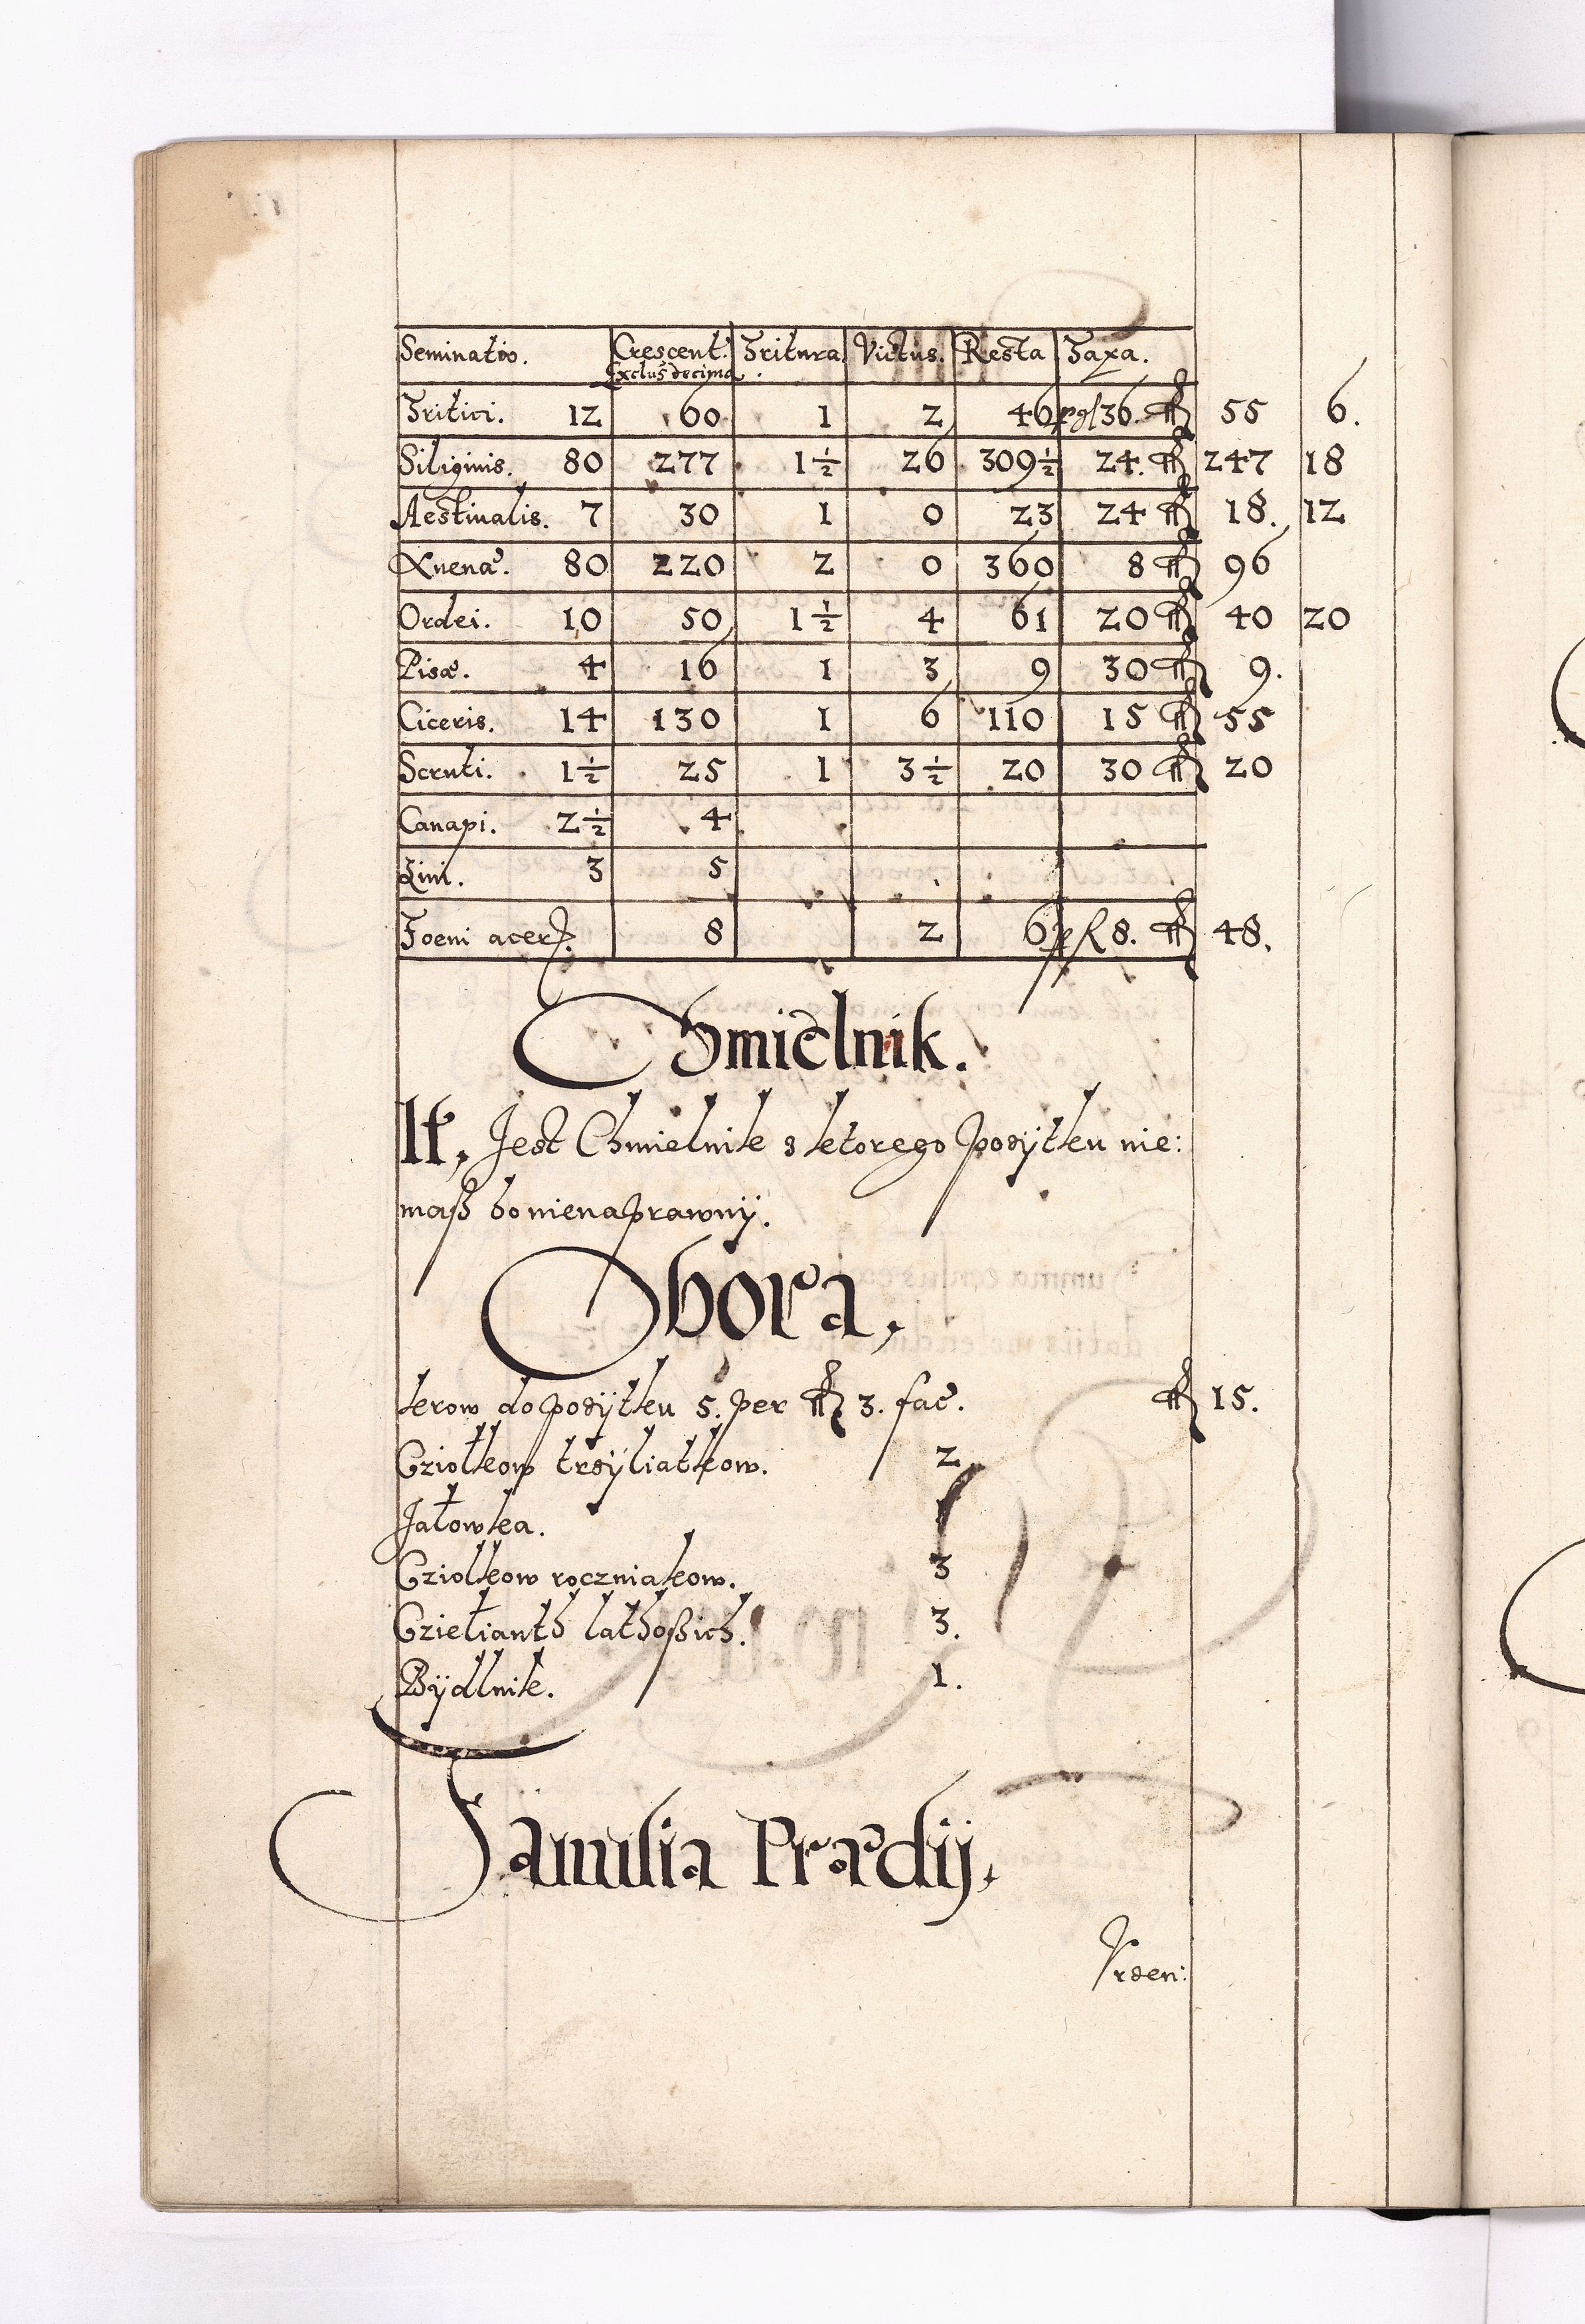 Seminatio. Crescent. Tritura Victus. Resta Taxa.
Exclus decima.
Tritici. 12 60 1 2 46 36. 55 6.
Siliginis. 80 277 1½ 26 309½ 24. 247 18
Aestiualis. 7 30 1 0 23 24 18. 12
Auenæ. 80 220 2 0 360 8 96
Ordei. 10 50 1½ 4 61 20 40 20
Pisæ. 4 16 1 3 9 30 9.
Ciceris. 14 130 1 6 110 15 55
Scruti. 1½ 25 1 3½ 20 30 20
Canapi. 2½ 4
Lini. 3 5
Foeni acer. 8 2 6 8. 48.
Chmielnik.
It. Jest Chmielnik s ktorego pozÿtku nie:
maß bo nienaprawnÿ.
Obora.
krow do pozÿtku 5. per 3. fac. 15.
Cziołkow trzÿliatkow. 2
Jałowka. 1
Cziolkow roczniakow. 3
Czielianth lathoßich. 3.
Bÿdlnik. 1.
Familia Prædij.
Vrzen: